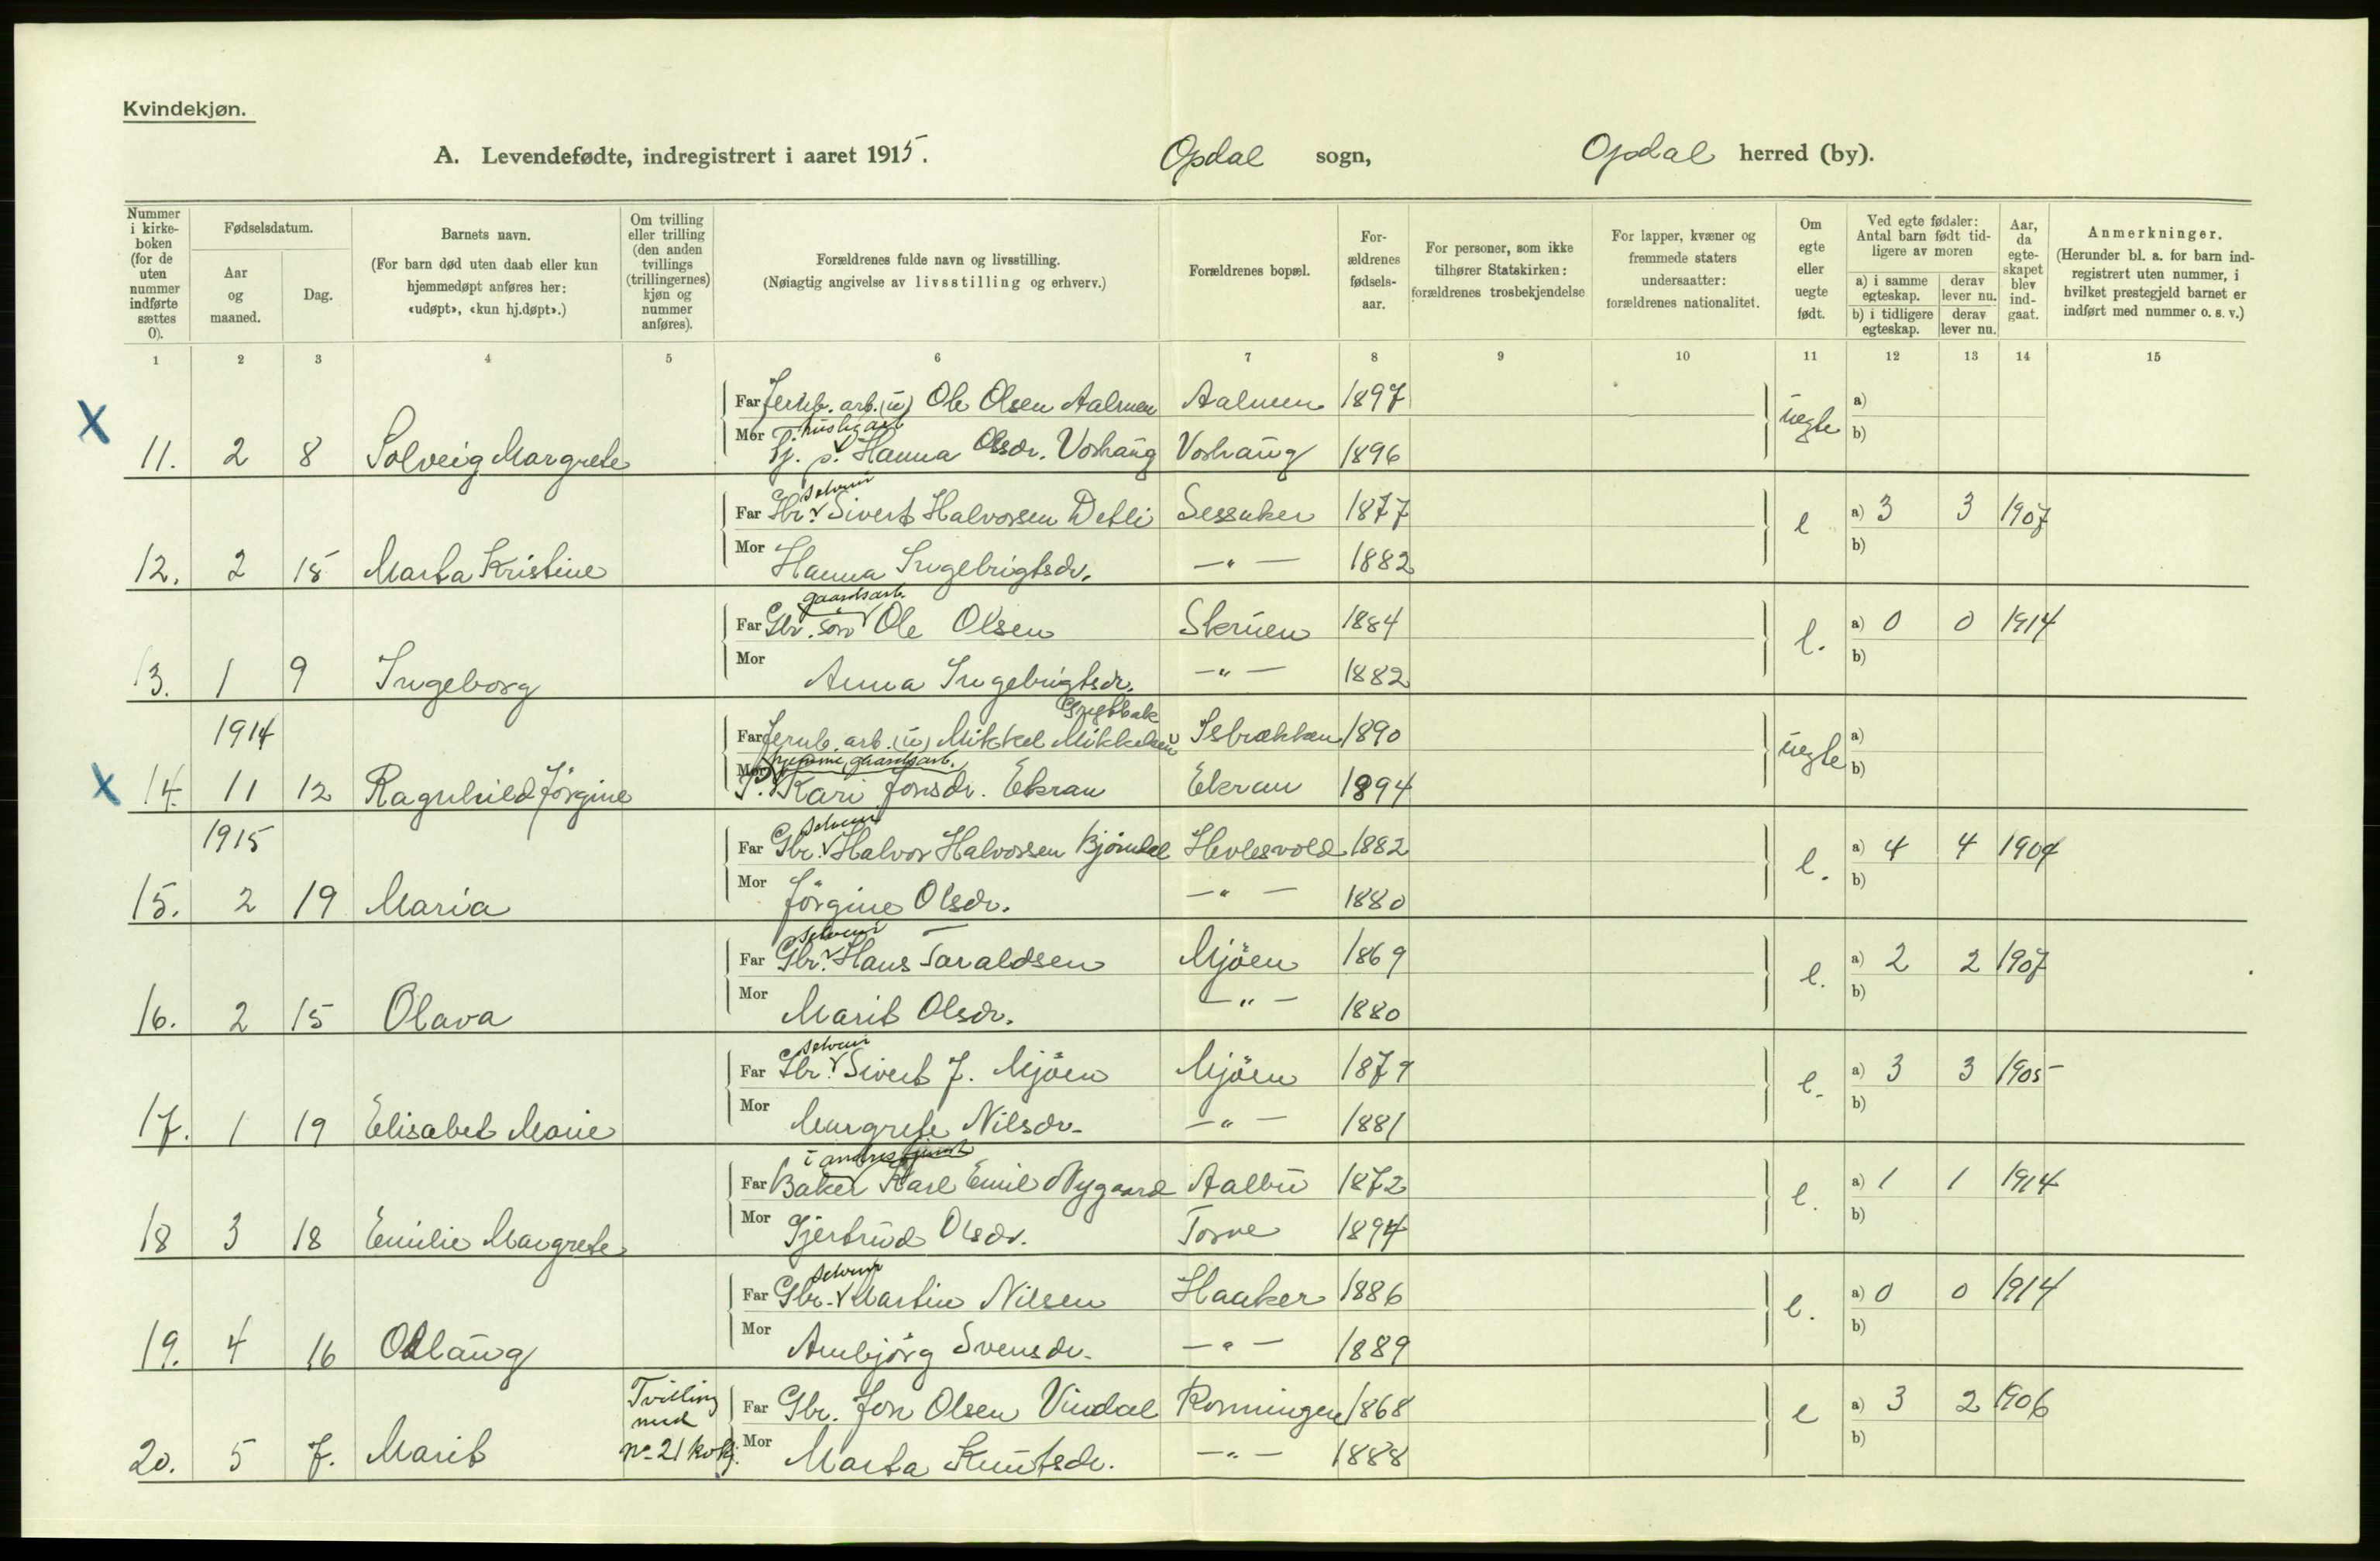 Kvindekjøn.
A. Levendefødte, indregistrert i aaret 1915. Opdal sogn, Opdal herred (by).
Nummer i kirkeboken (for de uten nummer indførte sættes 0).
Fødselsdatum.
Aar og maaned.
Dag.
Barnets navn.
(For barn død uten daab eller kun hjemmedøpt anføres her: «udøpt», «kun hj.døpt».)
Om tvilling eller trilling (den anden tvillings (trillingernes) kjøn og nummer anføres).
Forældrenes fulde navn og livsstilling.
(Nøiagtig angivelse av livsstilling og erhverv.)
Forældrenes bopæl.
Forældrenes fødselsaar.
For personer, som ikke tilhører Statskirken: forældrenes trosbekjendelse
For lapper, kvæner og fremmede staters undersaatter: forældrenes nationalitet.
Om egte eller uegte født.
Ved egte fødsler: Antal barn født tidligere av moren
a) i samme egteskap.
derav lever nu.
b) i tidligere egteskap.
derav lever nu.
Aar, da egteskapet blev indgaat.
Anmerkninger.
(Herunder bl. a. for barn indregistrert uten nummer, i hvilket prestegjeld barnet er indført med nummer o. s. v.)
1 2 3 4 5 6 7 8 9 10 11 12 13 14 15
Far Jernb. arb. (u) Ole Olsen Aalmen Aalmen 1897 uegte a)
X husligarb
11. 2 8 Solveig Margrete Mor Tj. p. Hanna Olsdr. Voshaug Voshaug 1896 b)
selveier
Far Gbr. Sivert Halvorsen Detli Sessaker 1877 e a) 3 3 1907
12. 2 15 Marta Kristine Mor Hanna Ingebrigtsdr. —"— 1882 b)
gaardsarb.
Far Gbr. søn Ole Olsen Skruen 1884 e. a) 0 0 1914
13. 1 9 Ingeborg Mor Anna Ingebrigtsdr. —"— 1882 b)
1914 Far Jernb. arb. (u) Mikkel Mikkelsen Isbrekken 1890 uegte a)
X hjemme, gaardsarb.
14. 11 12 Ragnhild Jörgine Mor Kari Jonsdr. Ekran Ekran 1894 b)
selveier
1915 Far Gbr. Halvor Halvorsen Björndal Hevlesvold 1882 e. a) 4 4 1904
15. 2 19 Maria Mor Jörgine Olsdr. —"— 1880 b)
selveier
Far Gbr. Hans Taraldsen Mjöen 1869 e. a) 2 2 1907
16. 2 15 Olava Mor Marit Olsdr. —"— 1880 b)
selveier
Far Gbr. Sivert J. Mjöen Mjöen 1879 e. a) 3 3 1905
17. 1 19 Elisabet Marie Mor Margrete Nilsdr. —"— 1881 b)
i andres tjeneste
Far Baker Karl Emil Nygaard Aalbu 1872 e. a) 1 1 1914
18 3 18 Emilie Margrete Mor Gjertrud Olsdr. Torve 1894 b)
selveier
Far Gbr. Martin Nilsen Haaker 1886 e. a) 0 0 1914
19. 4 16 Oddlaug Mor Ambjörg Svensdr. —"— 1889 b)
Tvilling med no 21 kvkj. Far Gbr. Jon Olsen Vindal Ronningen 1868 e a) 3 2 1906
20. 5 7. Marit Mor Marta Knutsdr. —"— 1888 b)